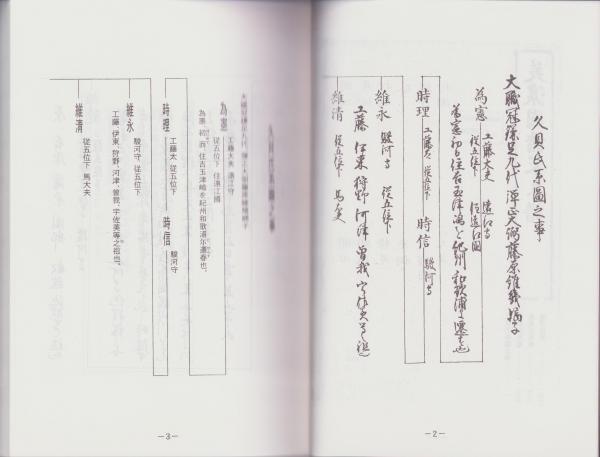 久貝氏系圖之事
大職冠鎌足九代弾正大弼藤原維幾嫡子
為憲 工藤大夫 遠江守
従五位下 住遠江國
為憲初日住吉玉津嶋を紀州和歌浦
時理 工藤太 従五位下 時信 駿河守
維永 駿河守 従五位下
工藤 伊東 狩野 河津 曽我 宇佐美等之祖也
維清 従五位下 馬大夫
—2—
為憲 工藤大夫 遠江守
従五位下 住遠江國
為憲、初而、住吉玉津嶋を紀州和歌浦尓遷春也、
時理 工藤太 従五位下 時信 駿河守
維永 駿河守 従五位下
工藤、伊東、狩野、河津、曽我、宇佐美等之祖也、
維清 従五位下 馬大夫
—3—